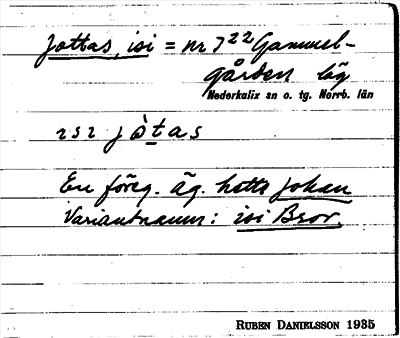 Jottas, isi = nr 7²² Gammel-
gården läg
Nederkalix sn o. tg. Norrb. län
ɪsɪ jòtas
En föreg. äg. hette Johan
Variantnamn: isi Bror.
RUBEN DANIELSSON 1935